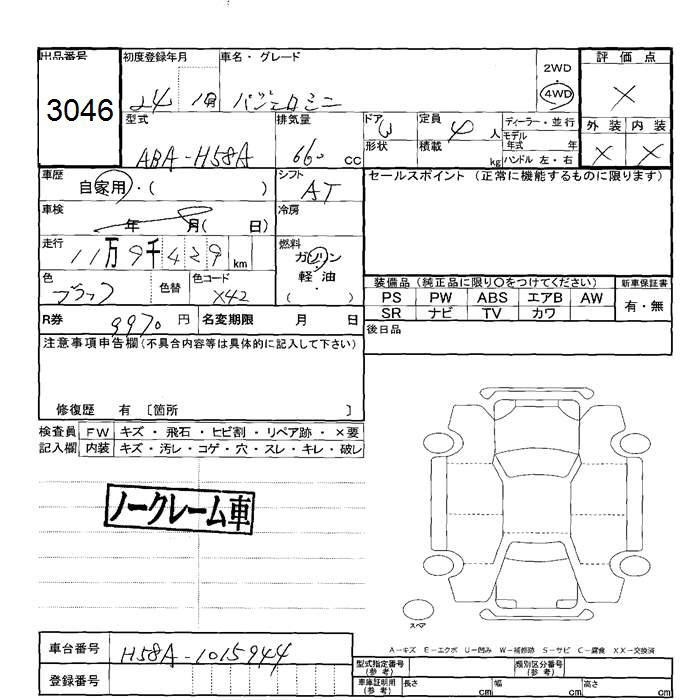 出品番号 初度登録年月 車名・グレード 評価点
3046 24 1月 パジェロミニ 2WD 4WD ×
型式 排気量 ドア 定員 ディーラー・並行 外装 内装
ABA-H58A 660 cc 3 4 人 モデル年式 年 × ×
形状 積載 kg ハンドル 左・右
車歴 自家用・( ) シフト AT セールスポイント (正常に機能するものに限ります)
車検 年 月( 日) 冷房
走行 11万9千429 km 燃料 ガソリン 軽・油 ( )
色 ブラック 色替 色コード X42
装備品 (純正品に限り○をつけてください) 新車保証書
PS PW ABS エアB AW 有・無
SR ナビ TV カワ
R券 9970 円 名変期限 月 日 後日品
注意事項申告欄(不具合内容等は具体的に記入して下さい)
修復歴 有 〔箇所 〕
検査員 FW キズ・飛石・ヒビ割・リペア跡・×要
記入欄 内装 キズ・汚レ・コゲ・穴・スレ・キレ・破レ
ノークレーム車
スペア
A-キズ E-エクボ U-凹み W-補修跡 S-サビ C-腐食 XX-交換済
車台番号 H58A-1015944
登録番号
型式指定番号(参考) 類別区分番号(参考)
車庫証明用(参考) 長さ cm 幅 cm 高さ cm